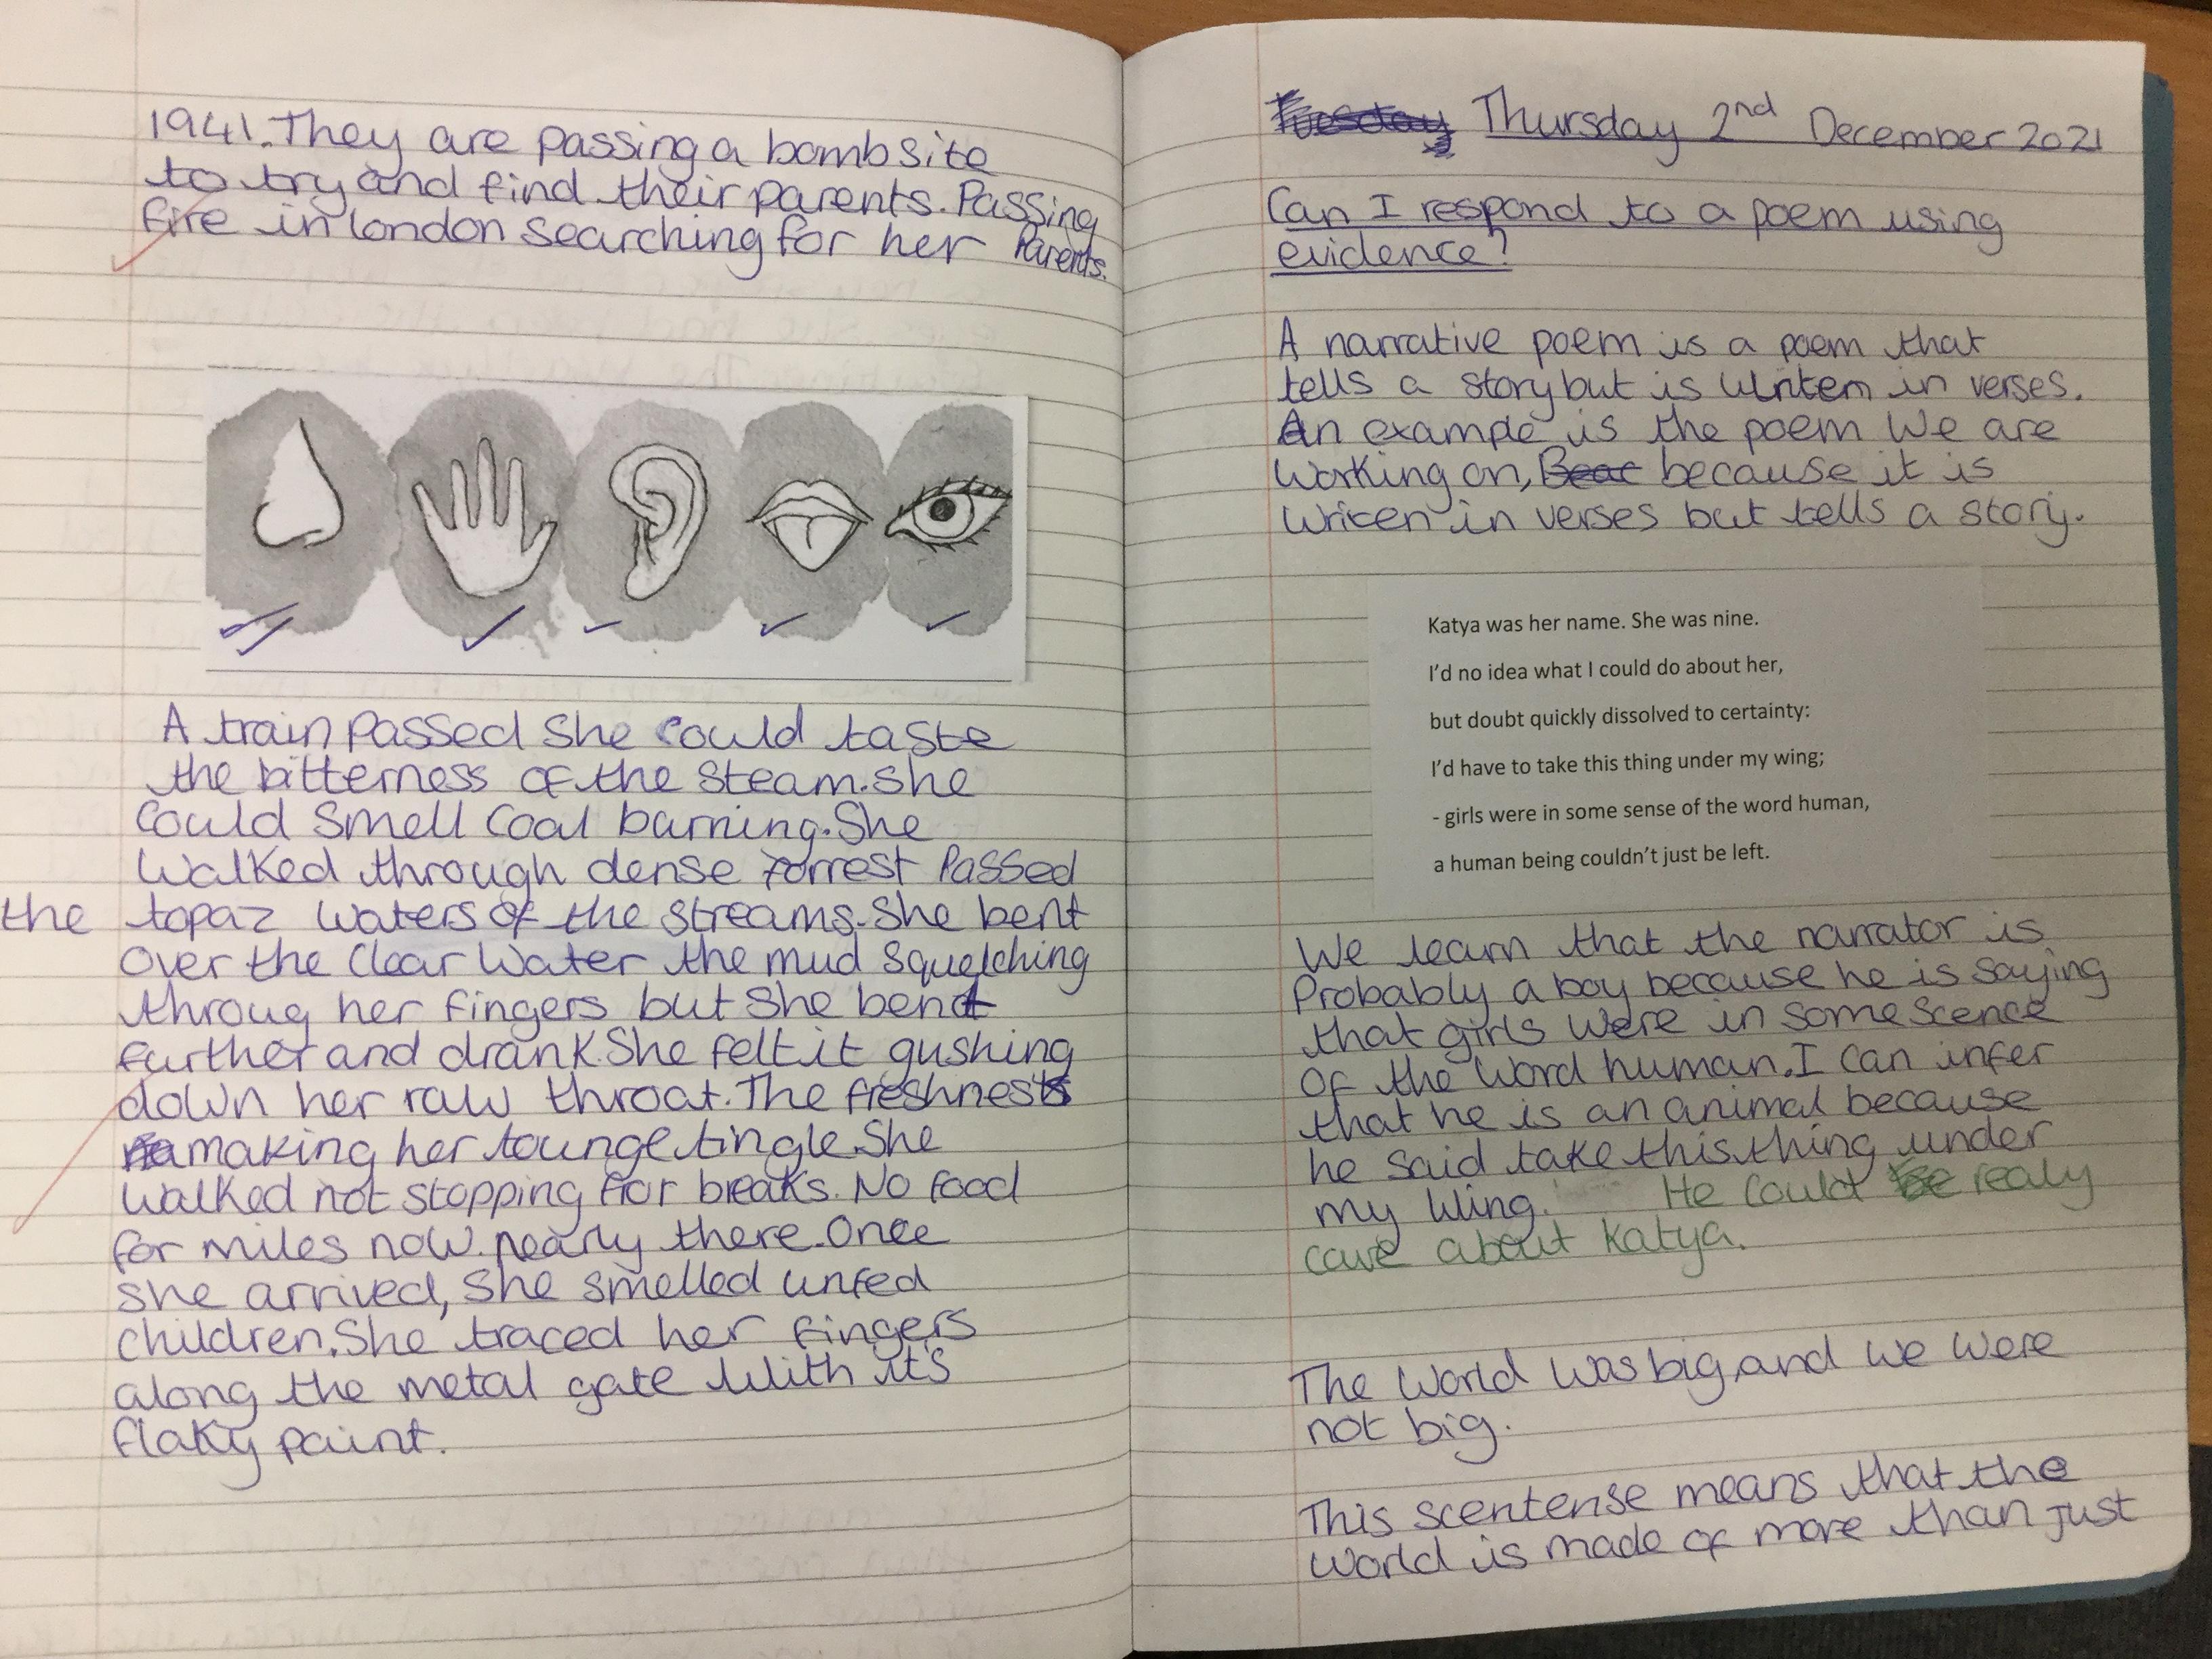 1941. They are passing a bombsite
to try and find their parents. Passing
fire in london searching for her Parents.
A train passed she could taste
the bitterness of the steam. she
could smell coal burning. She
walked through dense forrest passed
the topaz waters of the streams. She bent
over the clear water the mud squelching
throug her fingers but she bent
further and drank. She felt it gushing
down her raw throat. The freshness
making her tounge tingle. She
walked not stopping for breaks. No food
for miles now. nearly there. Once
she arrived, she smelled unfed
children. She traced her fingers
along the metal gate with it's
flaky paint.
Tuesday Thursday 2nd December 2021
Can I respond to a poem using
evidence?
A narrative poem is a poem that
tells a story but is writtem in verses.
An example is the poem we are
working on, Beac because it is
writen in verses but tells a story.
Katya was her name. She was nine.
I'd no idea what I could do about her,
but doubt quickly dissolved to certainty:
I'd have to take this thing under my wing;
- girls were in some sense of the word human,
a human being couldn't just be left.
We learn that the narrator is
Probably a boy because he is saying
that girls were in some scence
of the word human. I can infer
that he is an animal because
he said take this thing under
my wing. He could be realy
care about Katya.
The world was big, and we were
not big.
This scentense means that the
world is made of more than just